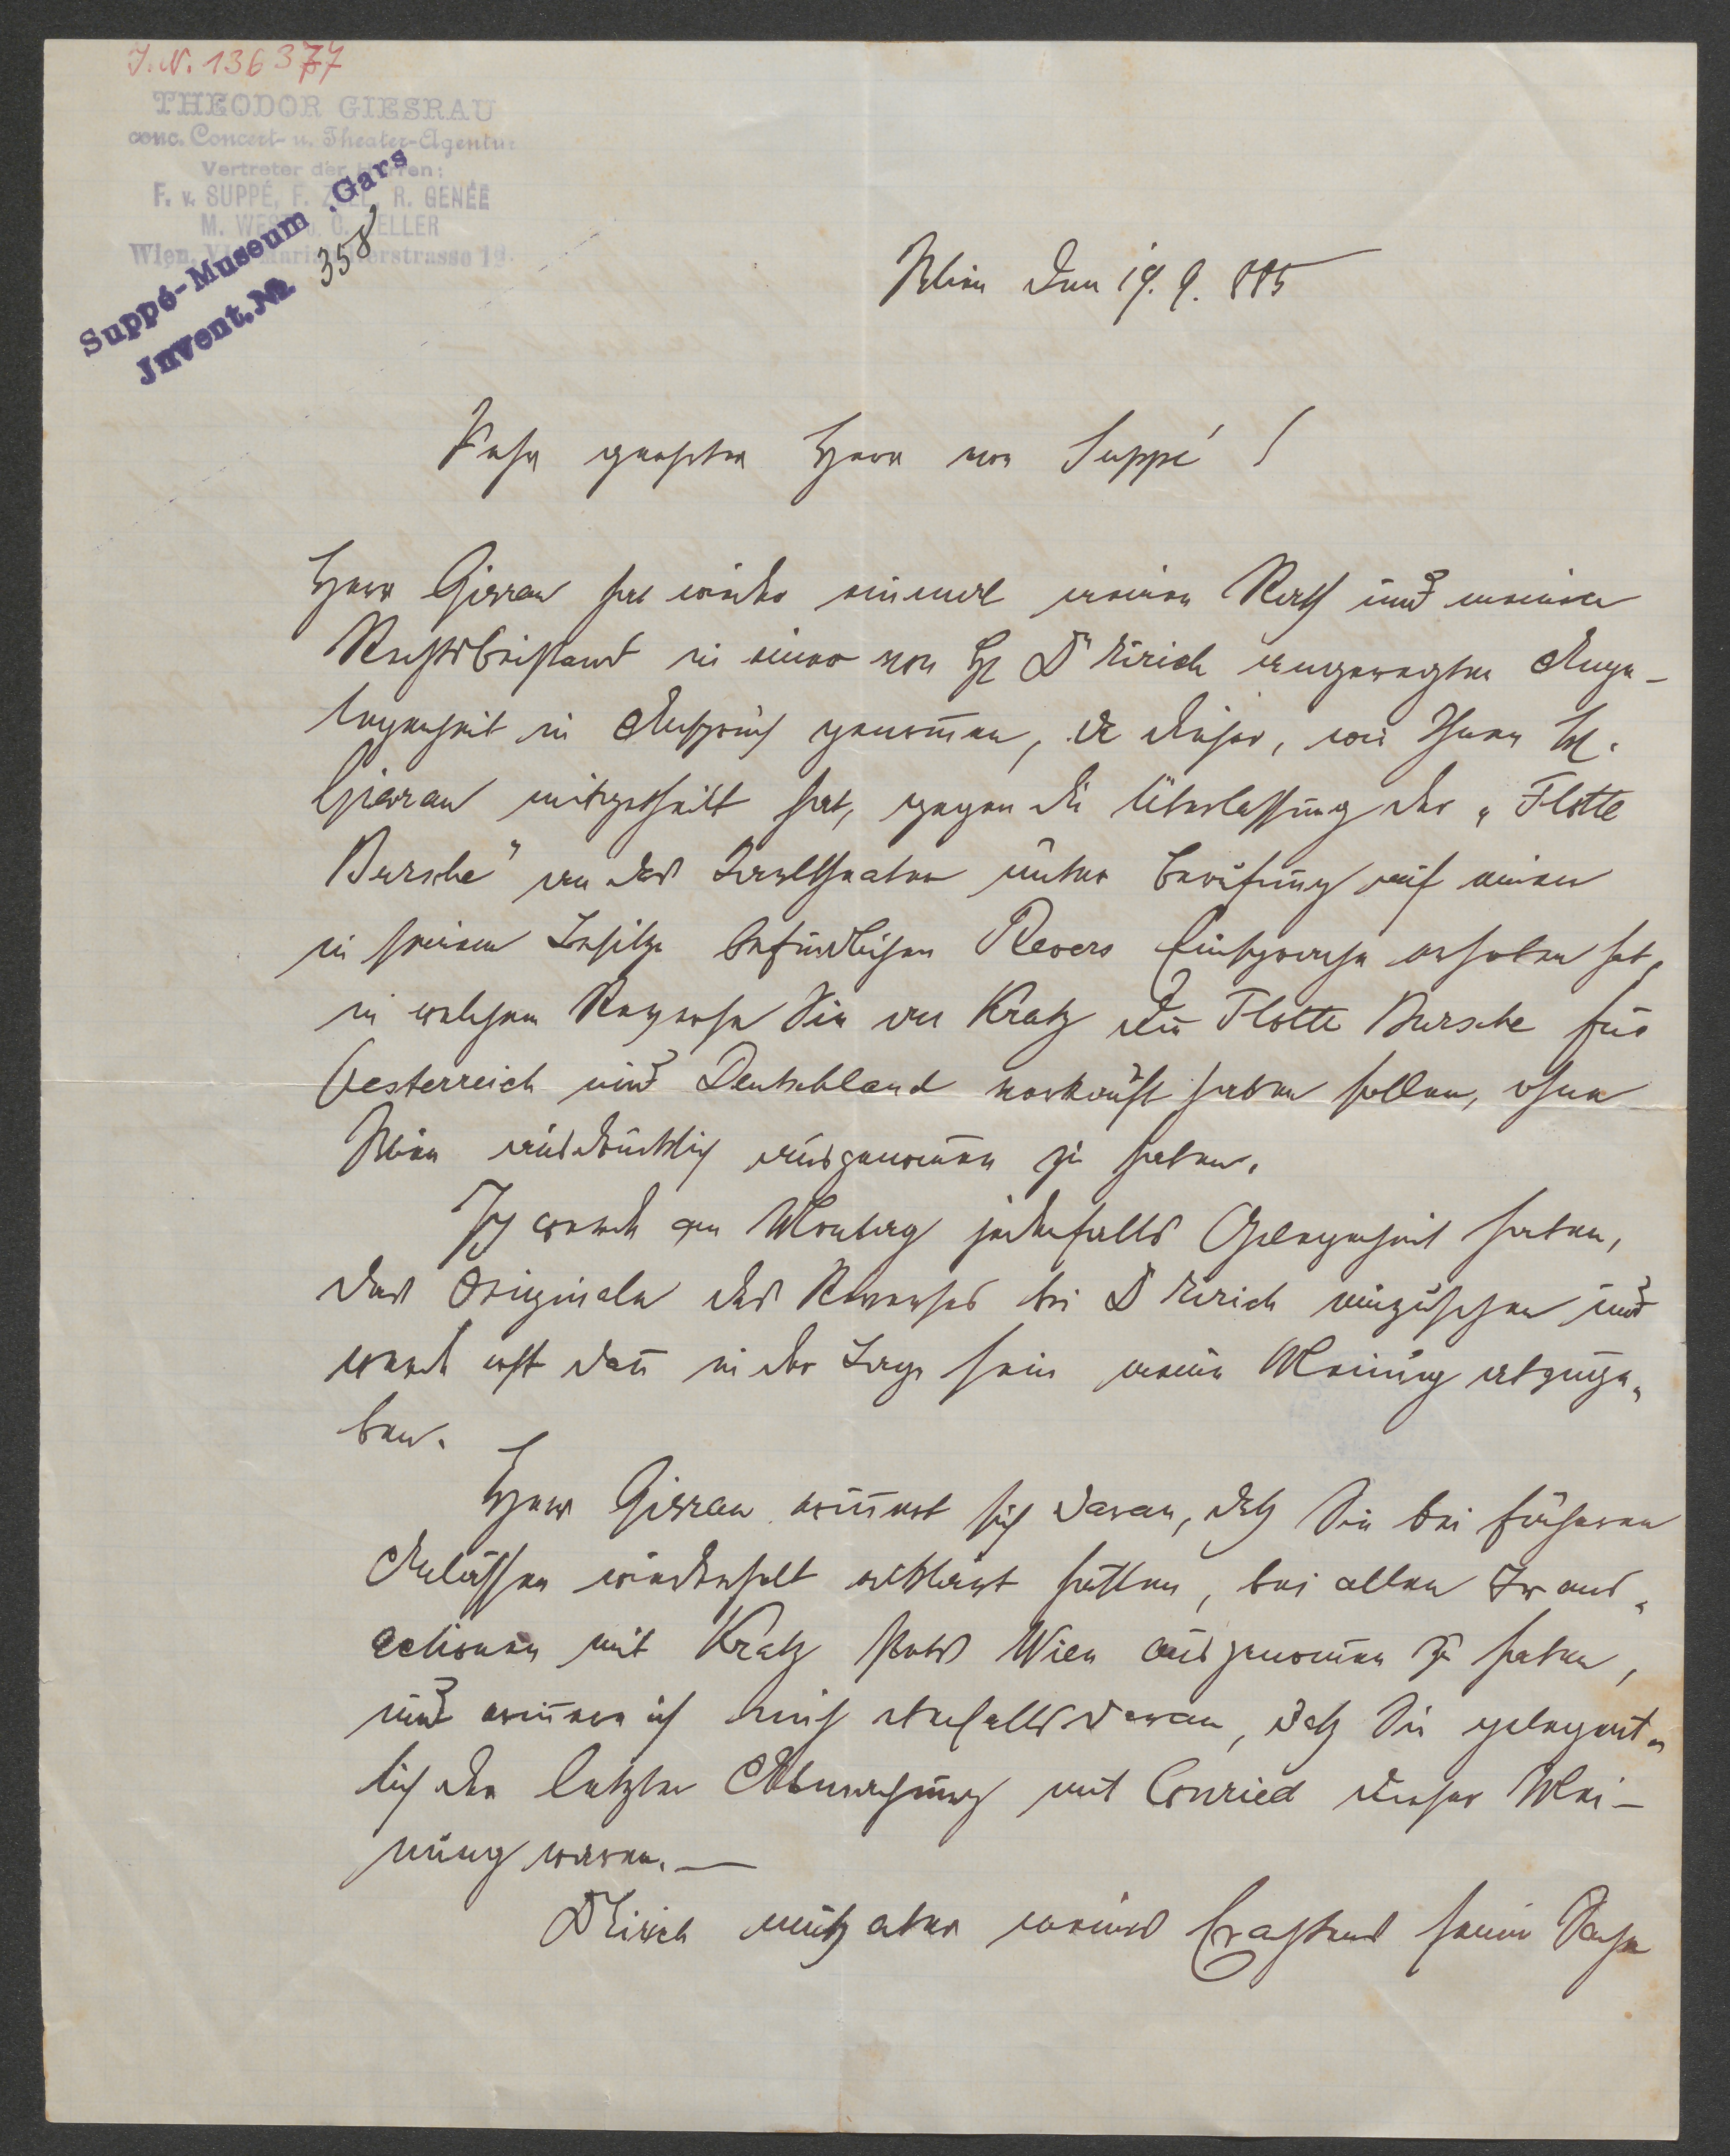 J.N. 136377
THEODOR GIESRAU
conc. Concert- u. Theater-Agentur
Vertreter der Herren:
F. v. SUPPÉ, F. ZELL, R. GENÉE
M. WEST u. C. ZELLER
Wien, VI. Mariahilferstrasse 19.
Suppé-Museum Gars
Invent. № 358
Wien den 19. 9. 885
Sehr geehrter Herr von Suppé !
Herr Giesrau hat wieder einmal meinen Rath und meinen
Rechtsbeistand in einer von H. Dr Eirich angeregten Ange-
legenheit in Anspruch genom̅en, da dieser, wie Ihnen H.
Giesrau mitgetheilt hat, gegen die Überlassung der „Flotte
Bursche" an das Carltheater unter Berufung auf einen
in seinem Besitze befindlichen Revers Einsprache erhoben hat,
in welchem Reverse Sie an Kratz die Flotte Bursche für
Oesterreich und Deutschland verkauft haben sollen, ohne
Wien ausdrücklich ausgenom̅en zu haben.
Ich werde am Montag jedenfalls Gelegenheit haben,
das Originale des Reverses bei Dr Eirich einzusehen und
werde erst dan̅ in der Lage sein meine Meinung abzuge-
ben.
Herr Giesrau erin̅ert sich daran, daß Sie bei früheren
Anlässen wiederholt erklärt hätten, bei allen Trans-
actionen mit Kratz stets Wien ausgenom̅en zu haben,
und erin̅ere ich mich ebenfalls daran, daß Sie gelegent-
lich der letzten Abmachung mit Conried dieser Mei-
nung waren. —
Dr Eirich muß aber meines Erachtens seine Sache